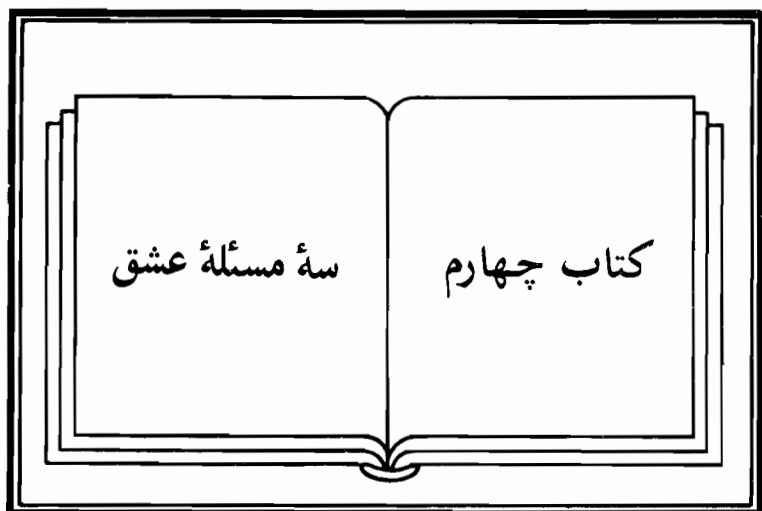 کتاب چهارم
سهٔ مسئلهٔ عشق